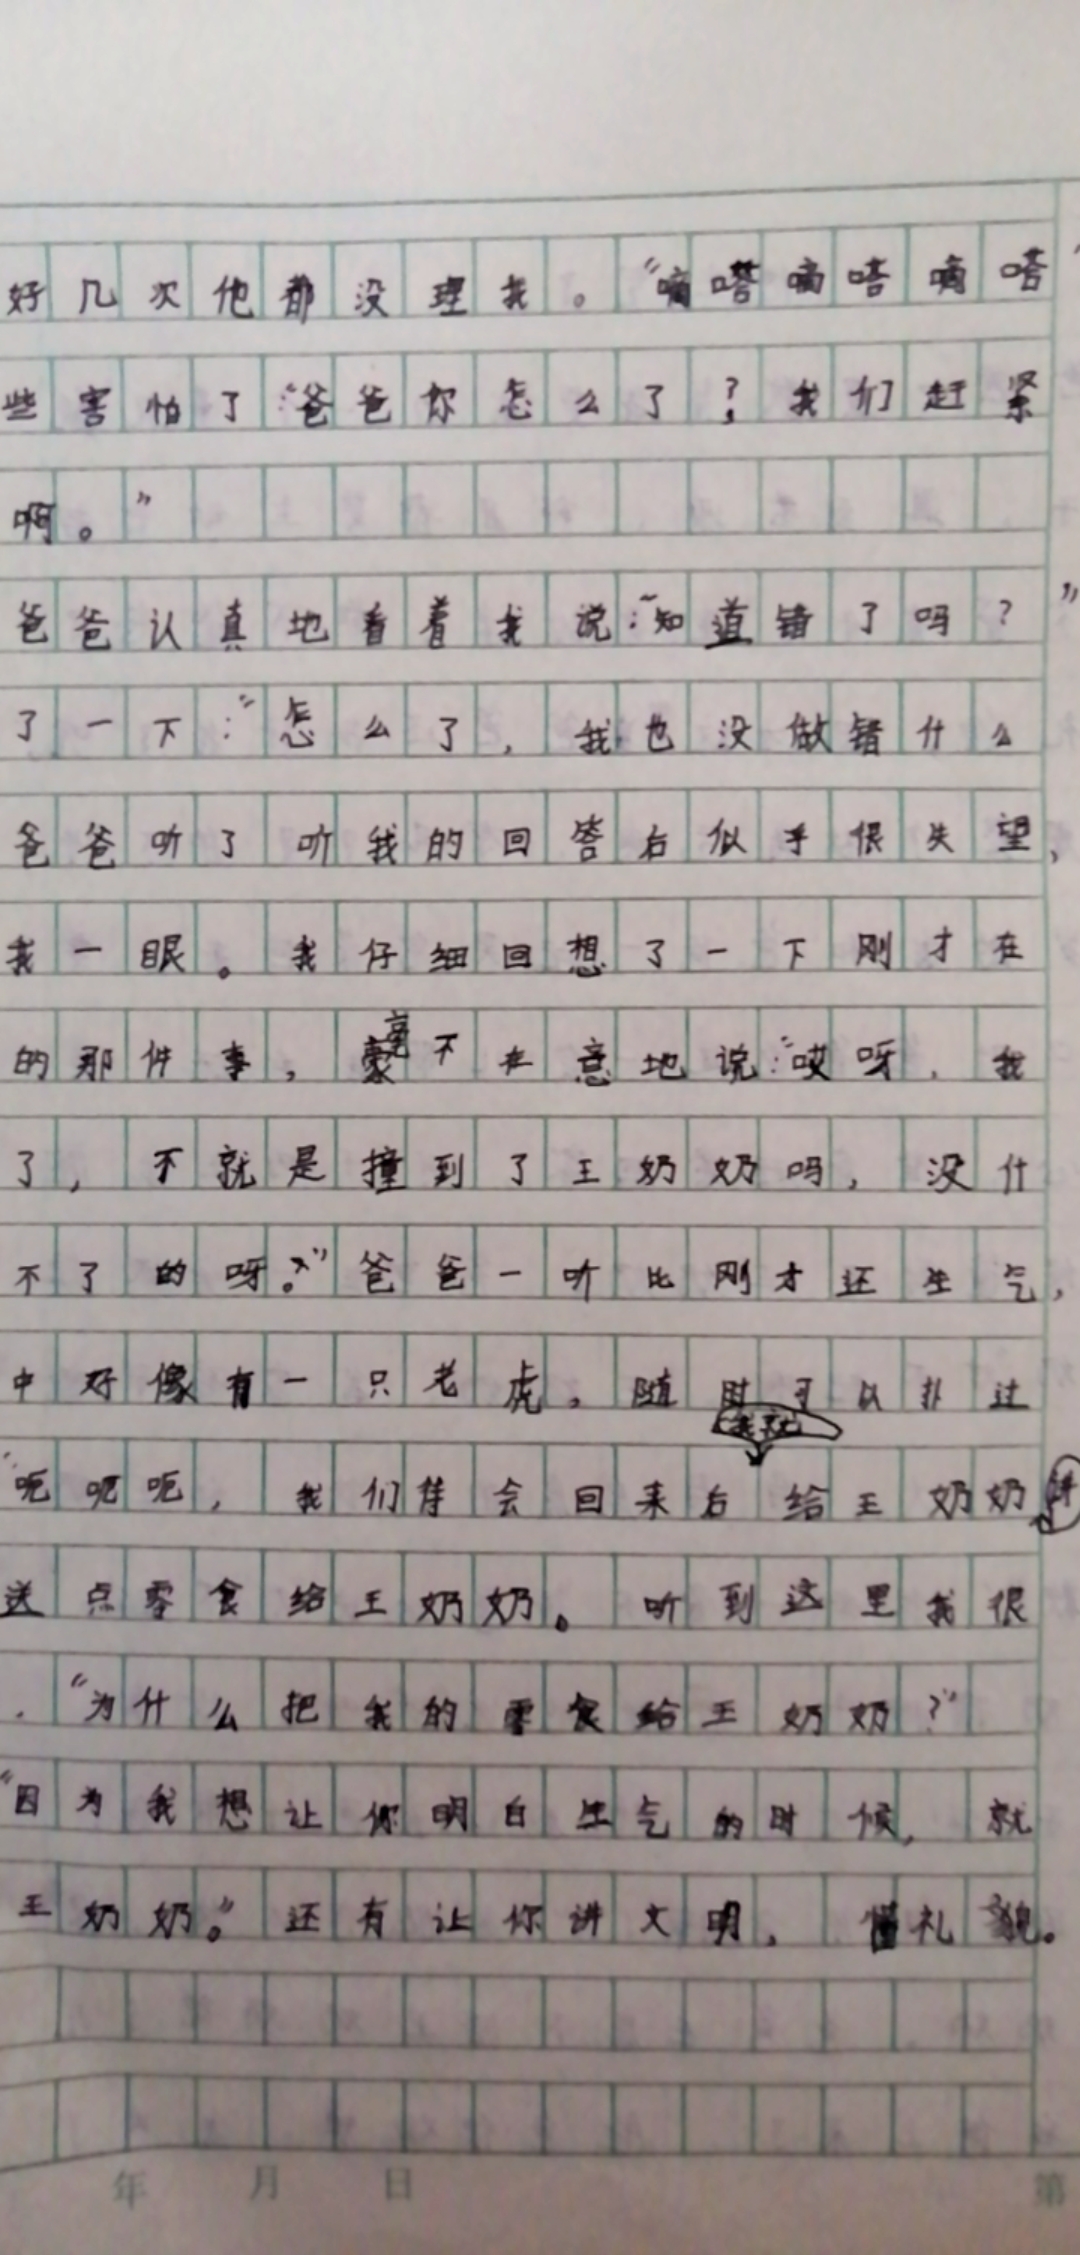 好几次他都没理我。“嘀嗒嘀嗒嘀嗒”
些害怕了:“爸爸你怎么了?我们赶紧
啊。”
爸爸认真地看着我说:“知道错了吗?”
了一下:“怎么了,我也没做错什么
爸爸听了听我的回答后似乎很失望,
我一眼。我仔细回想了一下刚才在
的那件事,毫不在意地说:“哎呀,我
了,不就是撞到了王奶奶吗,没什
不了的呀。”爸爸一听比刚才还生气,
中好像有一只老虎,随时可以扑过
我就
“呃呃呃,我们待会回来后给王奶奶
送点零食给王奶奶。听到这里我很
,“为什么把我的零食给王奶奶?”
“因为我想让你明白生气的时候,就
王奶奶。”还有让你讲文明,懂礼貌。
年 月 日 第